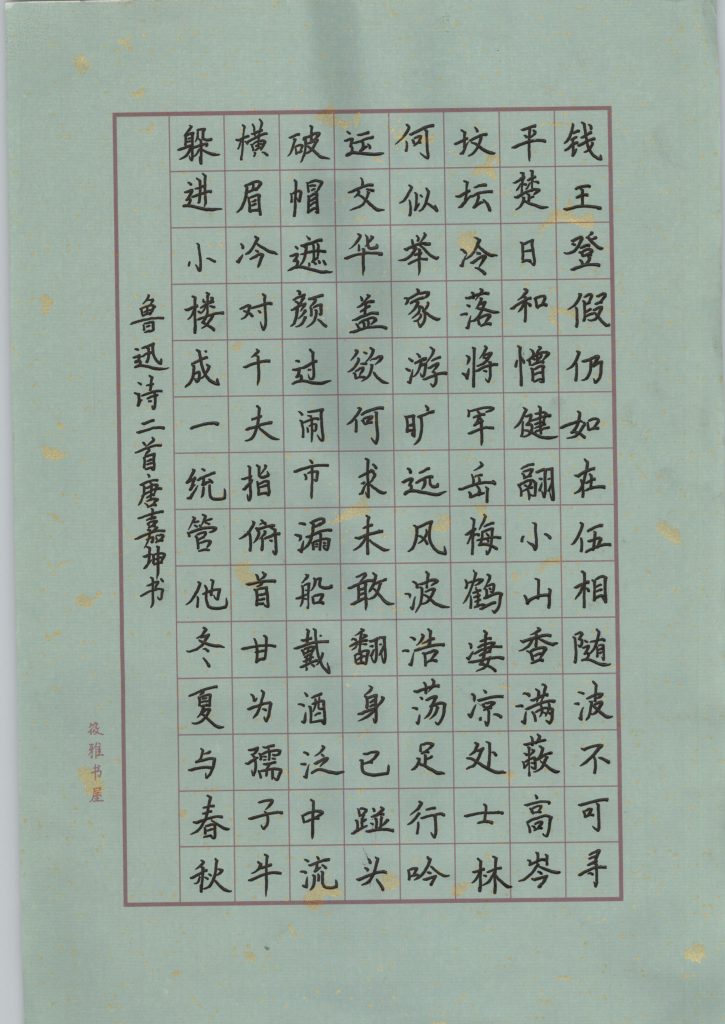 钱王登假仍如在伍相随波不可寻
平楚日和憎健翮小山香满蔽高岑
坟坛冷落将军岳梅鹤凄凉处士林
何似举家游旷远风波浩荡足行吟
运交华盖欲何求未敢翻身已踫头
破帽遮颜过闹市漏船戴酒泛中流
横眉冷对千夫指俯首甘为孺子牛
躲进小楼成一统管他冬夏与春秋
鲁迅诗二首唐嘉坤书
筱雅书屋